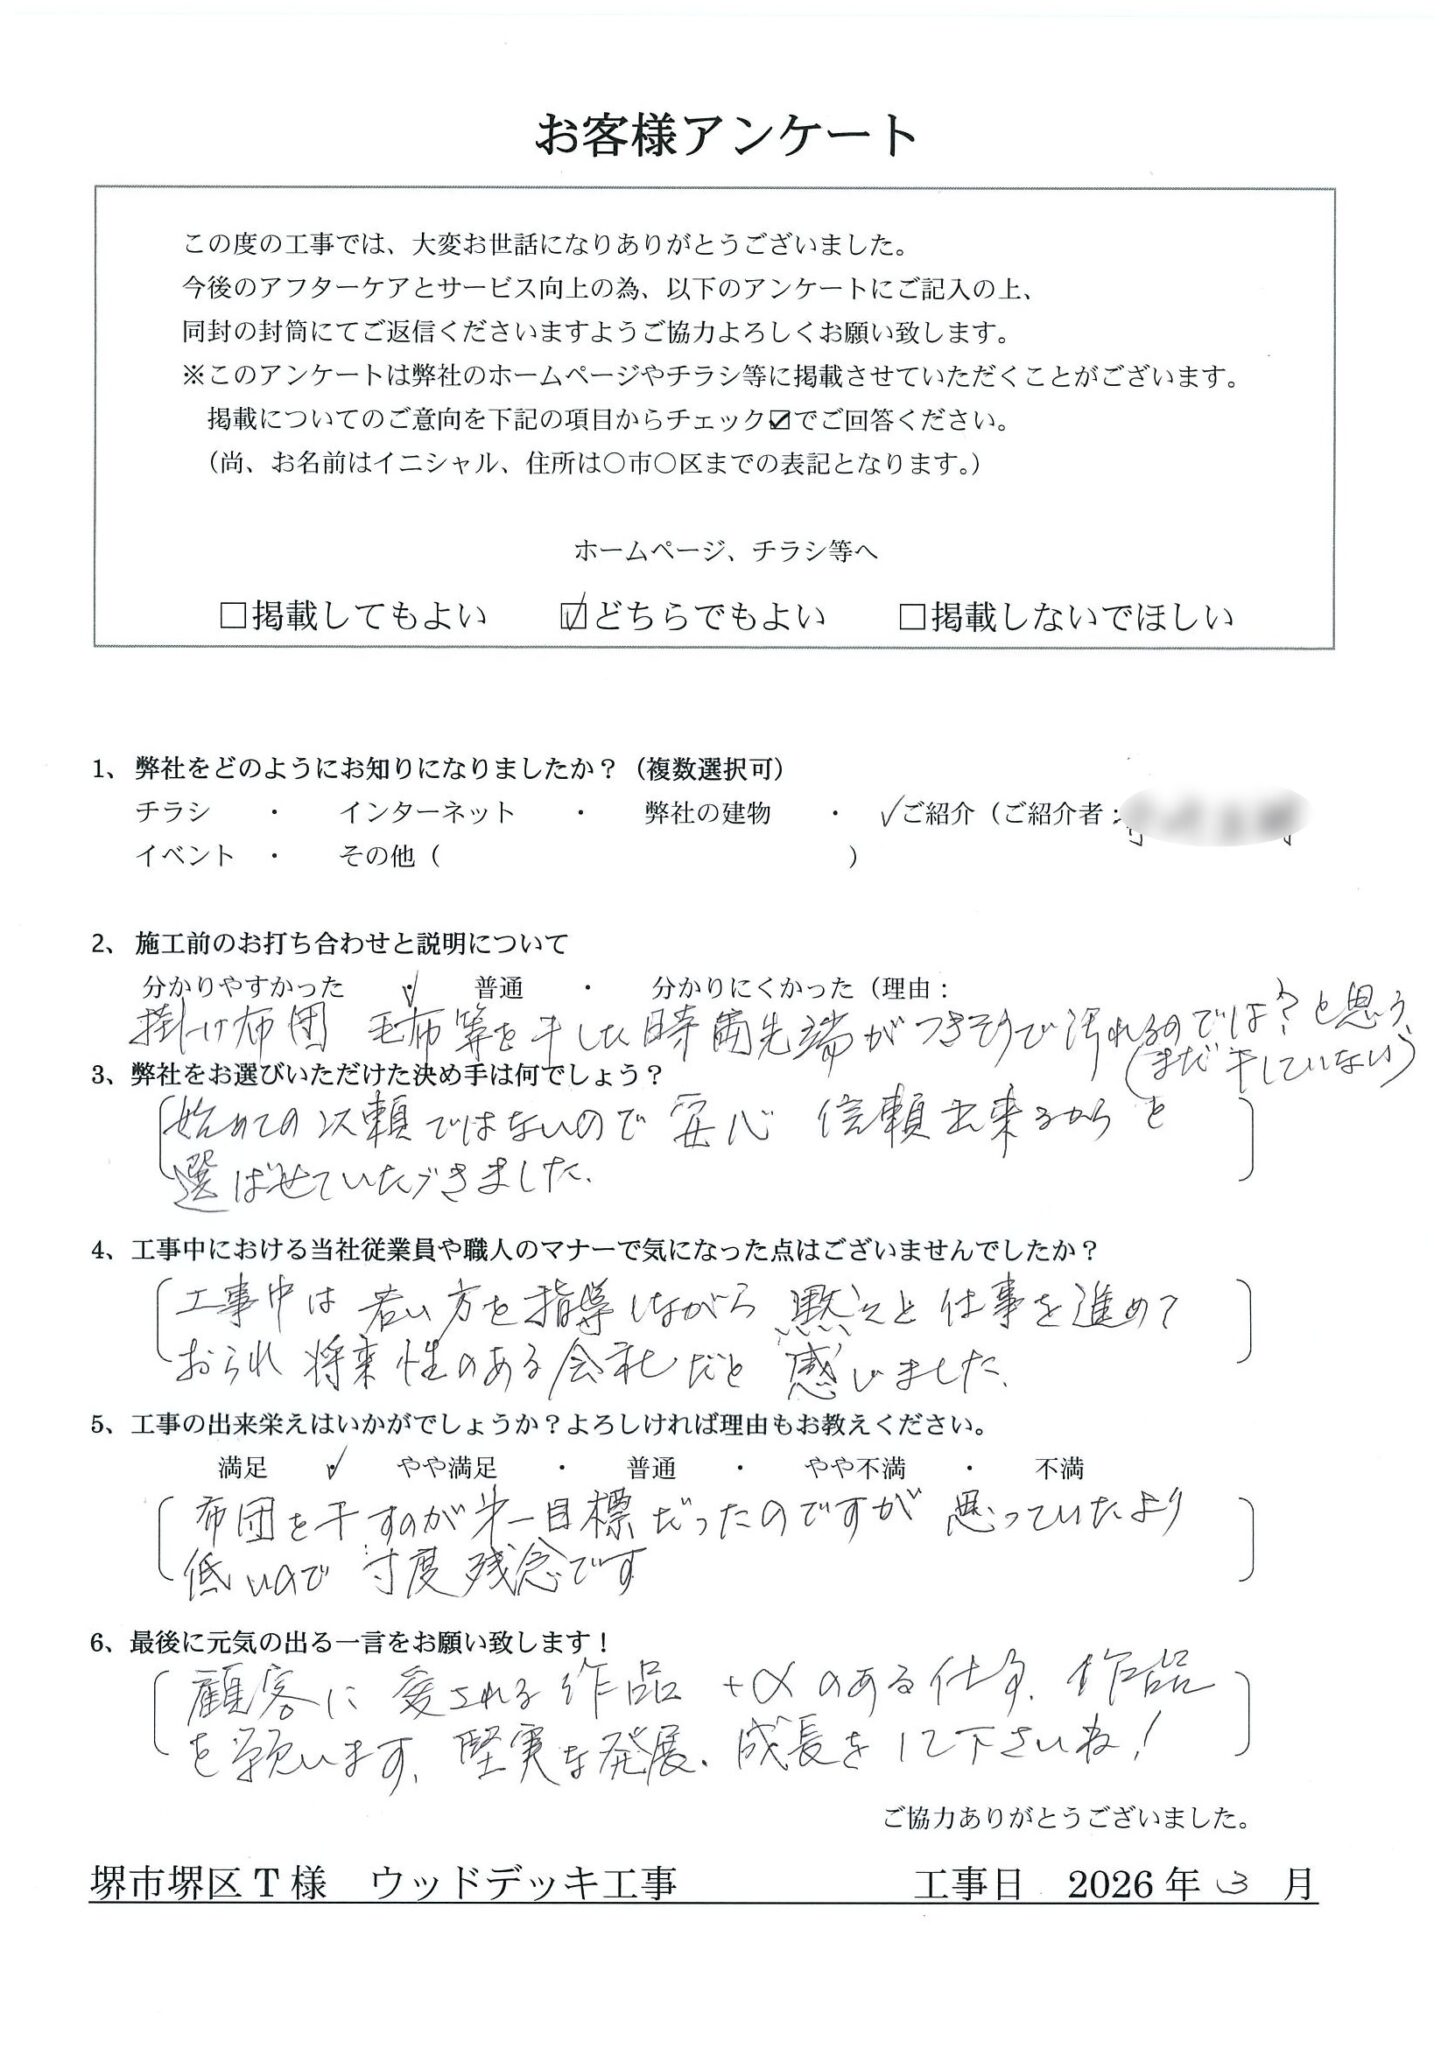 お客様アンケート
この度の工事では、大変お世話になりありがとうございました。
今後のアフターケアとサービス向上の為、以下のアンケートにご記入の上、
同封の封筒にてご返信くださいますようご協力よろしくお願い致します。
※このアンケートは弊社のホームページやチラシ等に掲載させていただくことがございます。
掲載についてのご意向を下記の項目からチェック☑でご回答ください。
（尚、お名前はイニシャル、住所は○市○区までの表記となります。）
ホームページ、チラシ等へ
□掲載してもよい ☑どちらでもよい □掲載しないでほしい
1、弊社をどのようにお知りになりましたか？（複数選択可）
チラシ ・ インターネット ・ 弊社の建物 ・ ✓ご紹介（ご紹介者：
イベント ・ その他（ ）
2、施工前のお打ち合わせと説明について
分かりやすかった ・ 普通 ・ 分かりにくかった（理由：
掛け布団 毛布等を干した時 先端がつきそうで汚れるのでは？と思う
（まだ干していない）
3、弊社をお選びいただけた決め手は何でしょう？
始めての依頼ではないので 安心 信頼出来るからと
選ばせていただきました.
4、工事中における当社従業員や職人のマナーで気になった点はございませんでしたか？
工事中は 若い方を指導しながら 黙々と仕事を進めて
おられ 将来性のある会社だと 感じました.
5、工事の出来栄えはいかがでしょうか？よろしければ理由もお教えください。
満足 ・ やや満足 ・ 普通 ・ やや不満 ・ 不満
布団を干すのが 第一目標だったのですが 思っていたより
低いので 寸度 残念です
6、最後に元気の出る一言をお願い致します！
顧客に 愛される作品 +αのある仕事. 作品
を願います. 堅実な発展. 成長をして下さいね！
ご協力ありがとうございました。
堺市堺区T様 ウッドデッキ工事 工事日 2026年 3 月